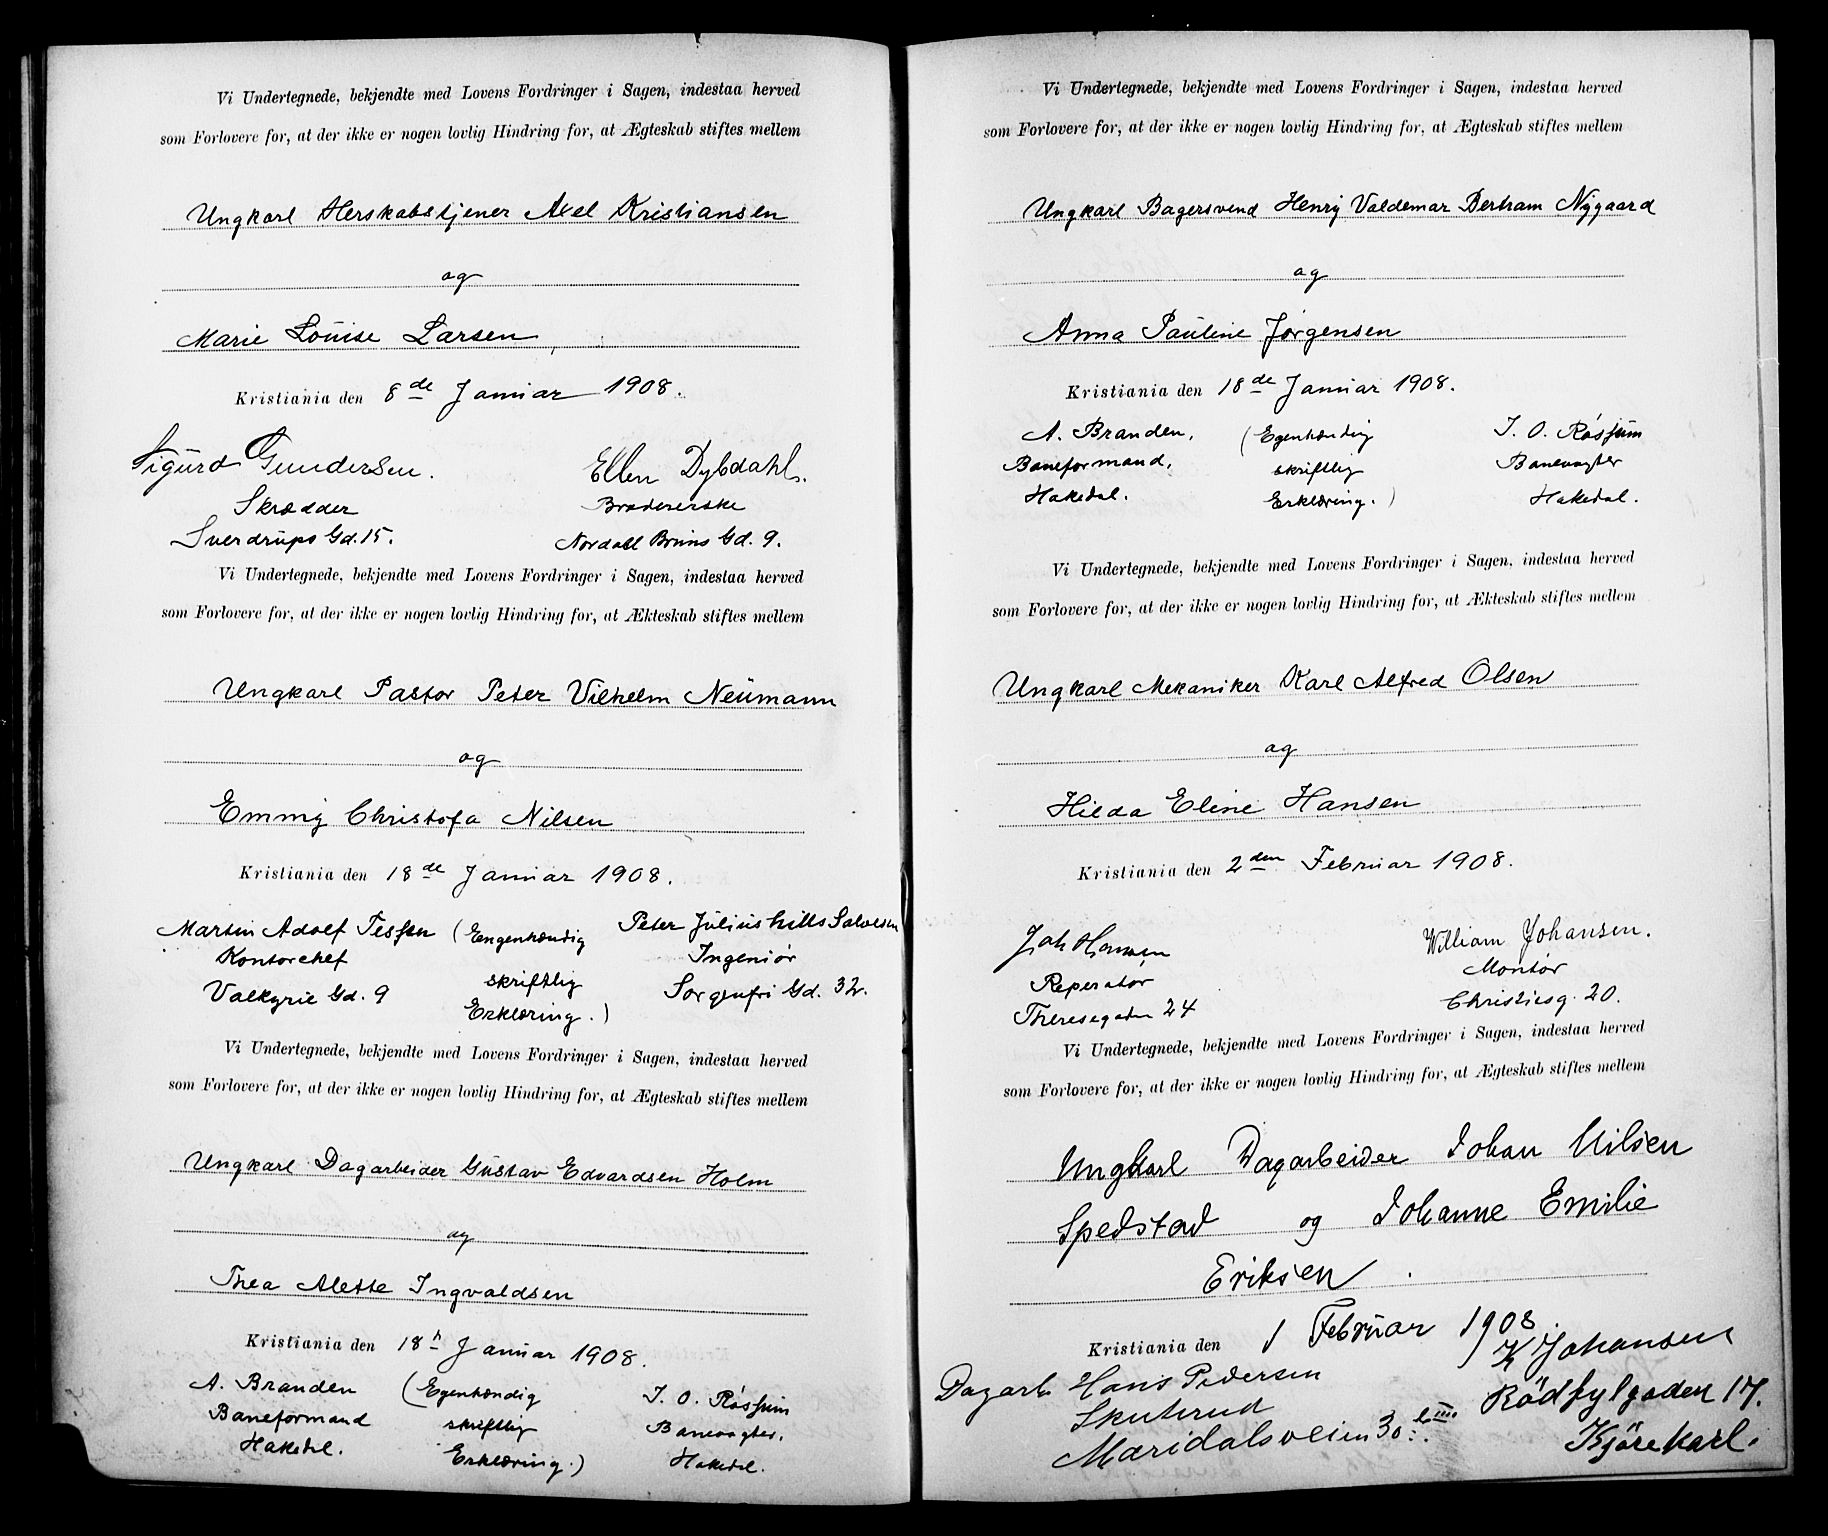 Vi Undertegnede, bekjendte med Lovens Fordringer i Sagen, indestaa herved
som Forlovere for, at der ikke er nogen lovlig Hindring for, at Ægteskab stiftes mellem
Ungkarl Herskabstjener Axel Kristiansen
og
Marie Louise Larsen
Kristiania den 8de Januar 1908.
Sigurd Gundersen. Ellen Dybdahl.
Skrædder Brodererske
Sverdrups Gd. 15. Nordall Bruns Gd. 9.
Vi Undertegnede, bekjendte med Lovens Fordringer i Sagen, indestaa herved
som Forlovere for, at der ikke er nogen lovlig Hindring for, at Ækteskab stiftes mellem
Ungkarl Pastor Peter Vilhelm Neumann
og
Emmy Christofa Nilsen
Kristiania den 18de Januar 1908.
Martin Adolf (Engenhændig Peter Julius Salvesen
Kontorchef skriftlig Ingeniør
Valkyrie Gd. 9 Erklæring.) Sorgenfri Gd. 32.
Vi Undertegnede, bekjendte med Lovens Fordringer i Sagen, indestaa herved
som Forlovere for, at der ikke er nogen lovlig Hindring for, at Ægteskab stiftes mellem
Ungkarl Dagarbeider Gustav Edvardsen Holm
og
Thea Alette Ingvaldsen
Kristiania den 18 Januar 1908.
A. Branden (Egenhændig I. O. Røssum
Baneformand skriftlig Banevogter.
Hakedal. Erklæring.) Hakedal.
Vi Undertegnede, bekjendte med Lovens Fordringer i Sagen, indestaa herved
som Forlovere for, at der ikke er nogen lovlig Hindring for, at Ægteskab stiftes mellem
Ungkarl Bagersvend Henry Valdemar Bertram Nygaard
og
Anna Pauline Jørgensen
Kristiania den 18de Januar 1908.
A. Branden, (Egenhændig I. O. Røssum
Baneformand, skriftlig Banevogter
Hakedal. Erklæring.) Hakedal.
Vi Undertegnede, bekjendte med Lovens Fordringer i Sagen, indestaa herved
som Forlovere for, at der ikke er nogen lovlig Hindring for, at Ækteskab stiftes mellem
Ungkarl Mekaniker Karl Alfred Olsen
og
Hilda Eline Hansen
Kristiania den 2den Februar 1908.
Joh Hansen William Johansen.
Reperatør Montør
Theresegaden 24 Christiesg. 20.
Vi Undertegnede, bekjendte med Lovens Fordringer i Sagen, indestaa herved
som Forlovere for, at der ikke er nogen lovlig Hindring for, at Ægteskab stiftes mellem
Ungkarl Dagarbeider Johan Nilsen
Spedstad og Johanne Emilie
Eriksen.
Kristiania den 1 Februar 1908.
Dagarb. Hans Pedersen K Johansen
Skuterud Rödfylgaden 17.
Maridalsveien 30 Kjørekarl.